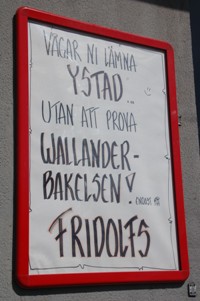 VÅGAR NI LÄMNA
YSTAD...
UTAN ATT PROVA
WALLANDER-
BAKELSEN!
ENDAST PÅ
FRIDOLFS